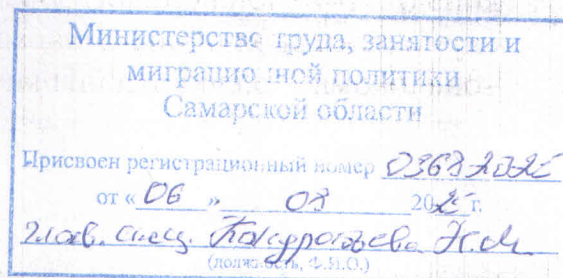 Министерство труда, занятости и
миграционной политики
Самарской области
Присвоен регистрационный номер
от « 06 » 20 г.
Глав. спец.
(должность, Ф.И.О.)